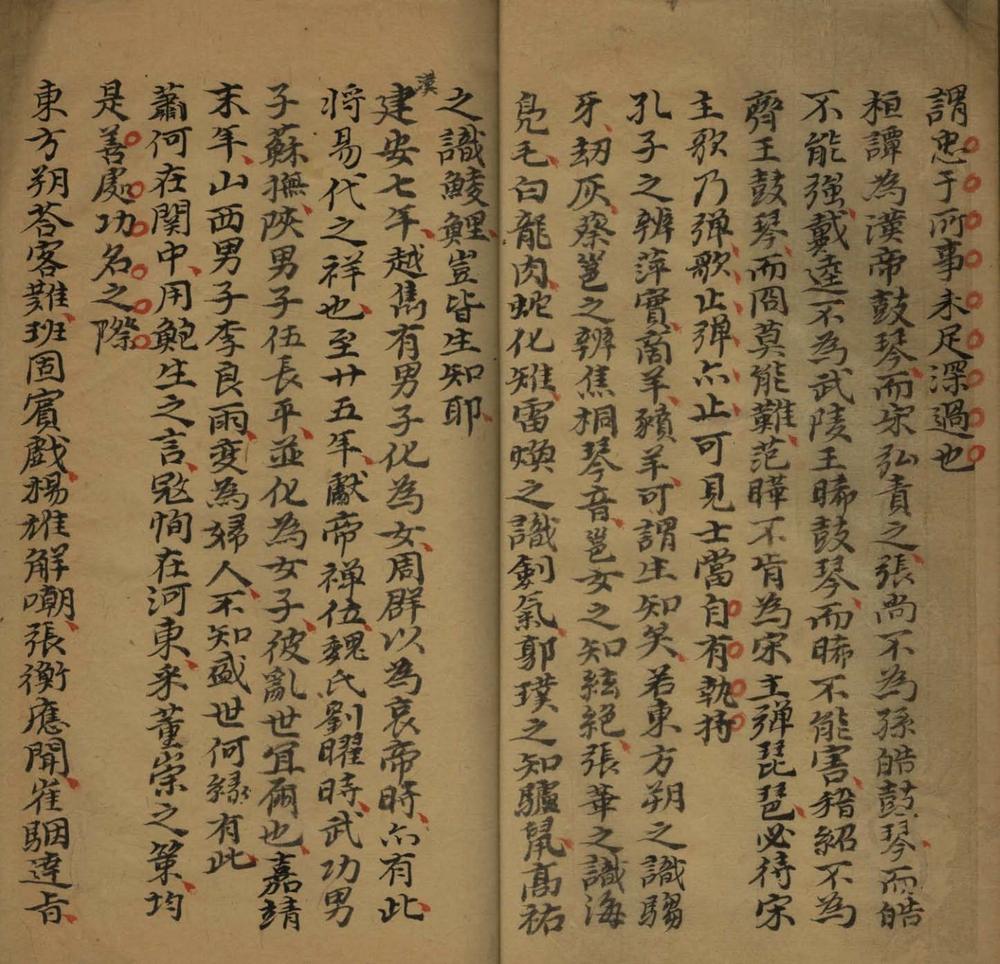 謂忠于所事未足深過也
桓譚為漢帝鼓琴而宋弘責之張尚不為孫皓鼓琴而皓
不能強戴逵不為武陵王晞鼓琴而晞不能害嵇紹不為
齊王鼓琴而冏莫能難范曄不肯為宋主彈琵琶必待宋
主歌乃彈歌止彈亦止可見士當自有執持
孔子之辨萍實商羊羵羊可謂生知矣若東方朔之識騶
牙劫灰蔡邕之辨焦桐琴音邕女之知絃絕張華之識海
鳧毛白龍肉蛇化雉雷煥之識劍氣郭璞之知驢鼠高祐
之識鯪鯉豈皆生知耶
漢建安七年越雋有男子化為女周群以為哀帝時亦有此
將易代之祥也至廿五年獻帝禅位魏氏劉曜時武功男
子蘇撫陝男子伍長平並化為女子彼亂世宜爾也嘉靖
末年山西男子李良雨变為婦人不知盛世何緣有此
蕭何在関中用鮑生之言寇恂在河東采董崇之策均
是善處功名之際
東方朔荅客難班固賓戲揚雄解嘲張衡應閒崔駰達旨